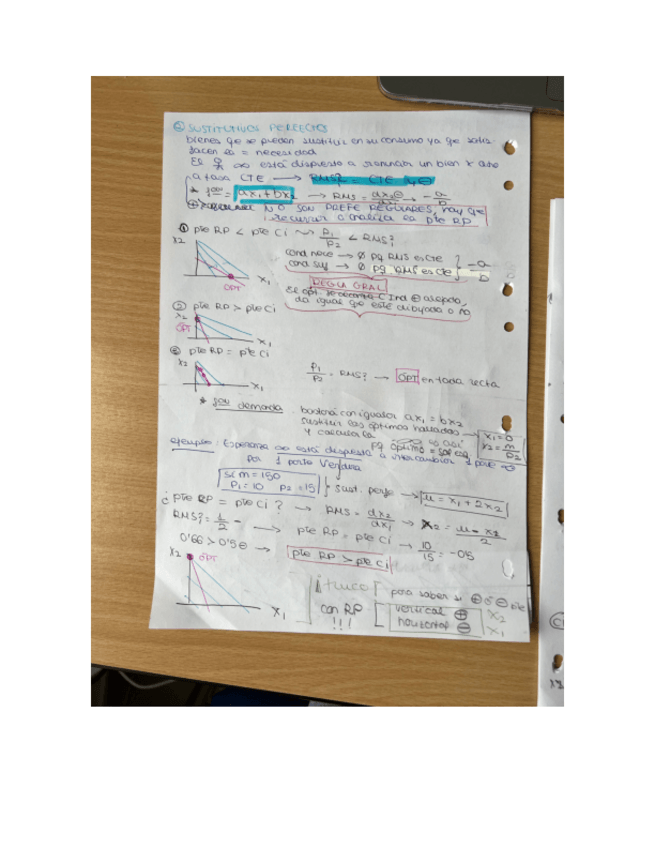 ② SUSTITUTIVOS PERFECTOS
bienes qe se pueden sustituir en su consumo ya qe satis
facen la = necesidad
El está dispuesto a renunciar un bien x otro
a tasa CTE → RMS = CTE y ⊖
* = ax₁ + bx₂ → RMS = dx₂ / dx₁ → -a/b
NO SON PREFE REGULARES, hay qe
recurrir a analiza la pte RP
① pte RP < pte Ci P₁/P₂ < RMS
X₂
cond nece → Ø pq RMS es cte } -a
cond suf → Ø pq RMS es cte } b
X₁
OPT
REGLA GRAL
da igual qe esté dibujada o no
② pte RP > pte Ci
X₂
OPT
X₁
③ pte RP = pte Ci
X₂
X₁
P₁/P₂ = RMS → OPT en toda recta
* demanda: bastará con igualar ax₁ = bx₂
sustituir los óptimos hallados
y calcularla
x₁ = 0
x₂ = m/P₂
ejemplo: Esperanza está dispuesta a intercambiar 1
por 1 porte Verdura
si m = 150
P₁ = 10 P₂ = 15 } sust. perfe → u = x₁ + 2x₂
¿pte RP = pte Ci? → RMS = dx₂/dx₁ → x₂ = u - x₂ / 2
RMS = 1/2 → pte RP = pte Ci → 10/15 = -0'5
0'66 > 0'5 → pte RP > pte Ci
X₂ OPT
X₁
¡truco
con RP
!!!
para saber si ⊕ ó ⊖ pte
vertical ⊕ X₂
horizontal ⊖ X₁